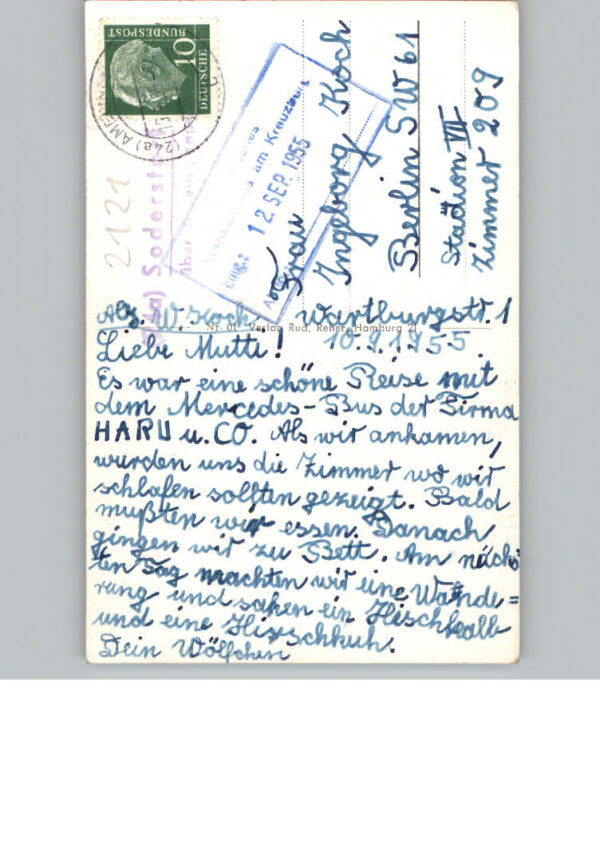 10
DEUTSCHE
BUNDESPOST
(24a)
2121
(24a) Soderst
über
am Kreuzberg
Eing.: 12. SEP. 1955
Frau
Ingeborg Koch
Berlin SW 61
Station VII
Zimmer 209
Abs. W. Koch, Wartburgstr. 1
Nr. 01 Verlag Rud. Reher, Hamburg 21
Liebe Mutti! 10.9.1955.
Es war eine schöne Reise mit
dem Mercedes-Bus der Firma
HARU u. CO. Als wir ankamen,
wurden uns die Zimmer wo wir
schlafen sollten gezeigt. Bald
mußten wir essen. Danach
gingen wir zu Bett. Am nächs
ten Tag machten wir eine Wande=
rung und sahen ein Hischkalb
und eine Hirschkuh.
Dein Wölfchen